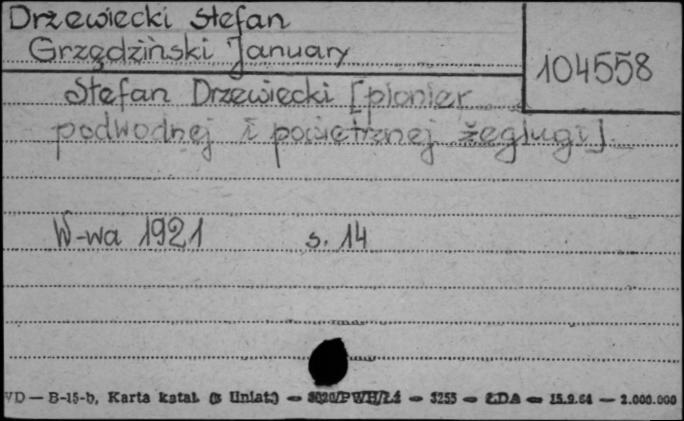 Drzewiecki Stefan
Grzędziński January
104558
Stefan Drzewiecki [pionier
podwodnej i powietrznej żeglugi]
W-wa 1921 s. 14
VD — B-15-b, Karta katal. (z Uniat.) — 3020/PWH/Łd — 3255 — ŁDA — 15.9.64 — 2.000.000